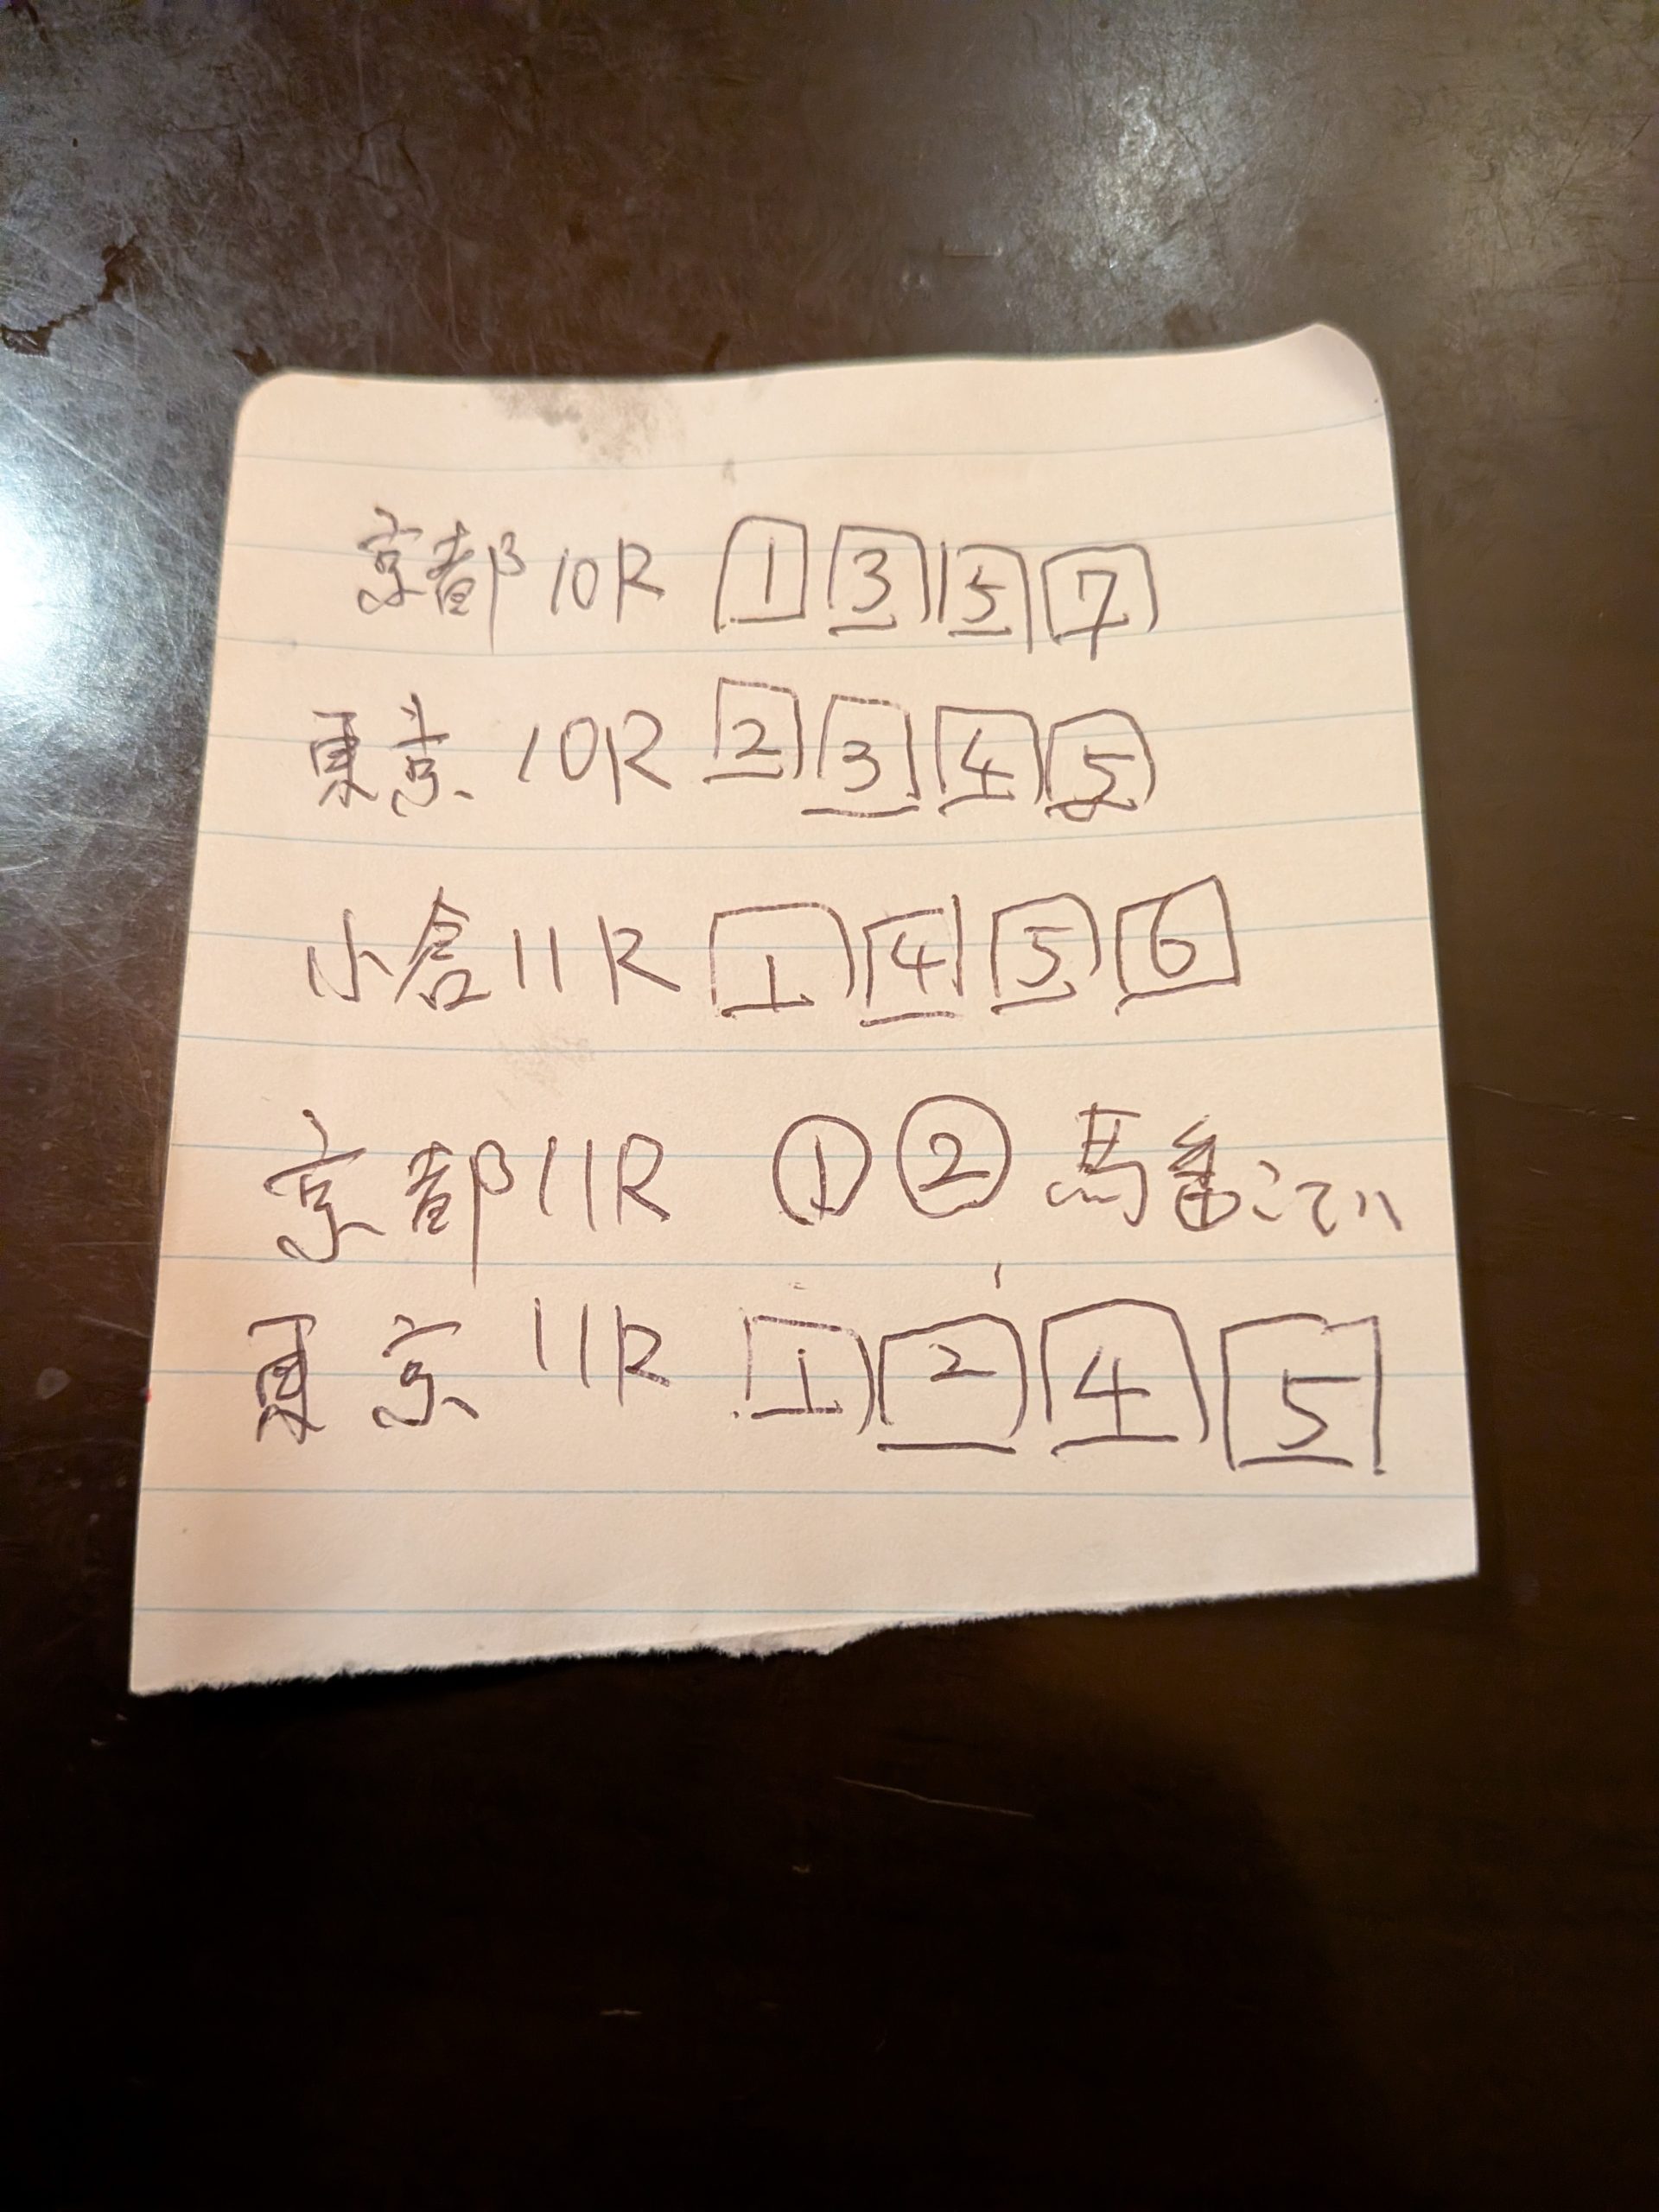 京都10R 1 3 5 7
東京10R 2 3 4 5
小倉11R 1 4 5 6
京都11R ① ② 馬番
東京11R 1 2 4 5